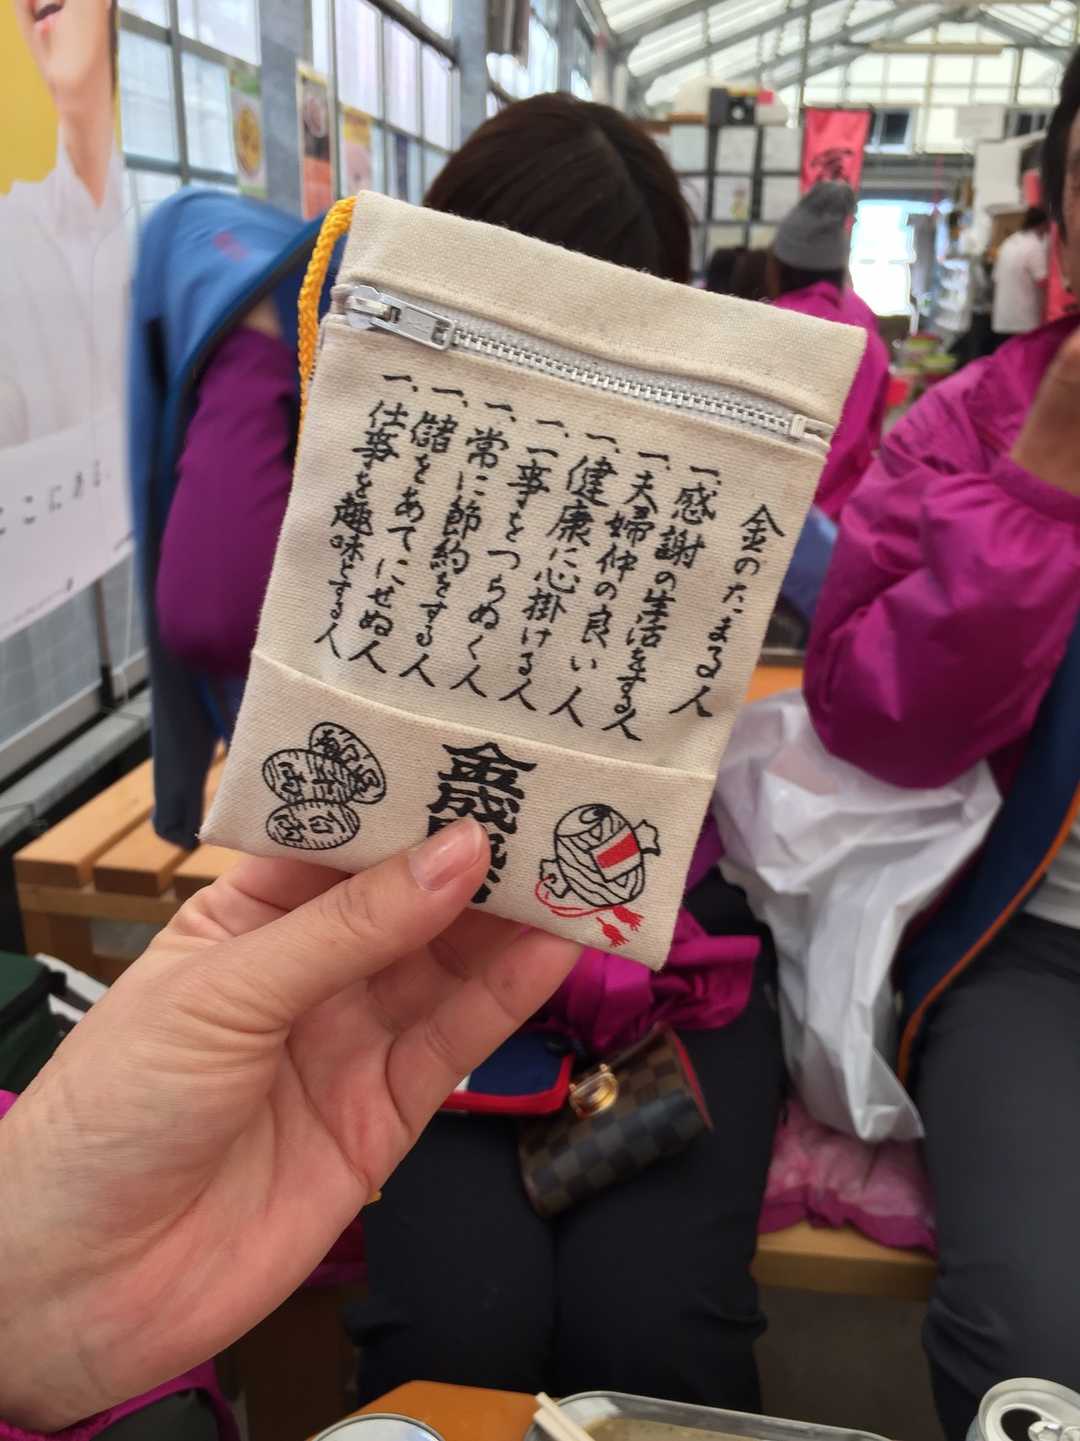 金のたまる人
一、感謝の生活をする人
一、夫婦仲の良い人
一、健康に心掛ける人
一、一事をつらぬく人
一、常に節約をする人
一、儲をあてにせぬ人
一、仕事を趣味とする人
金成
ここにある。